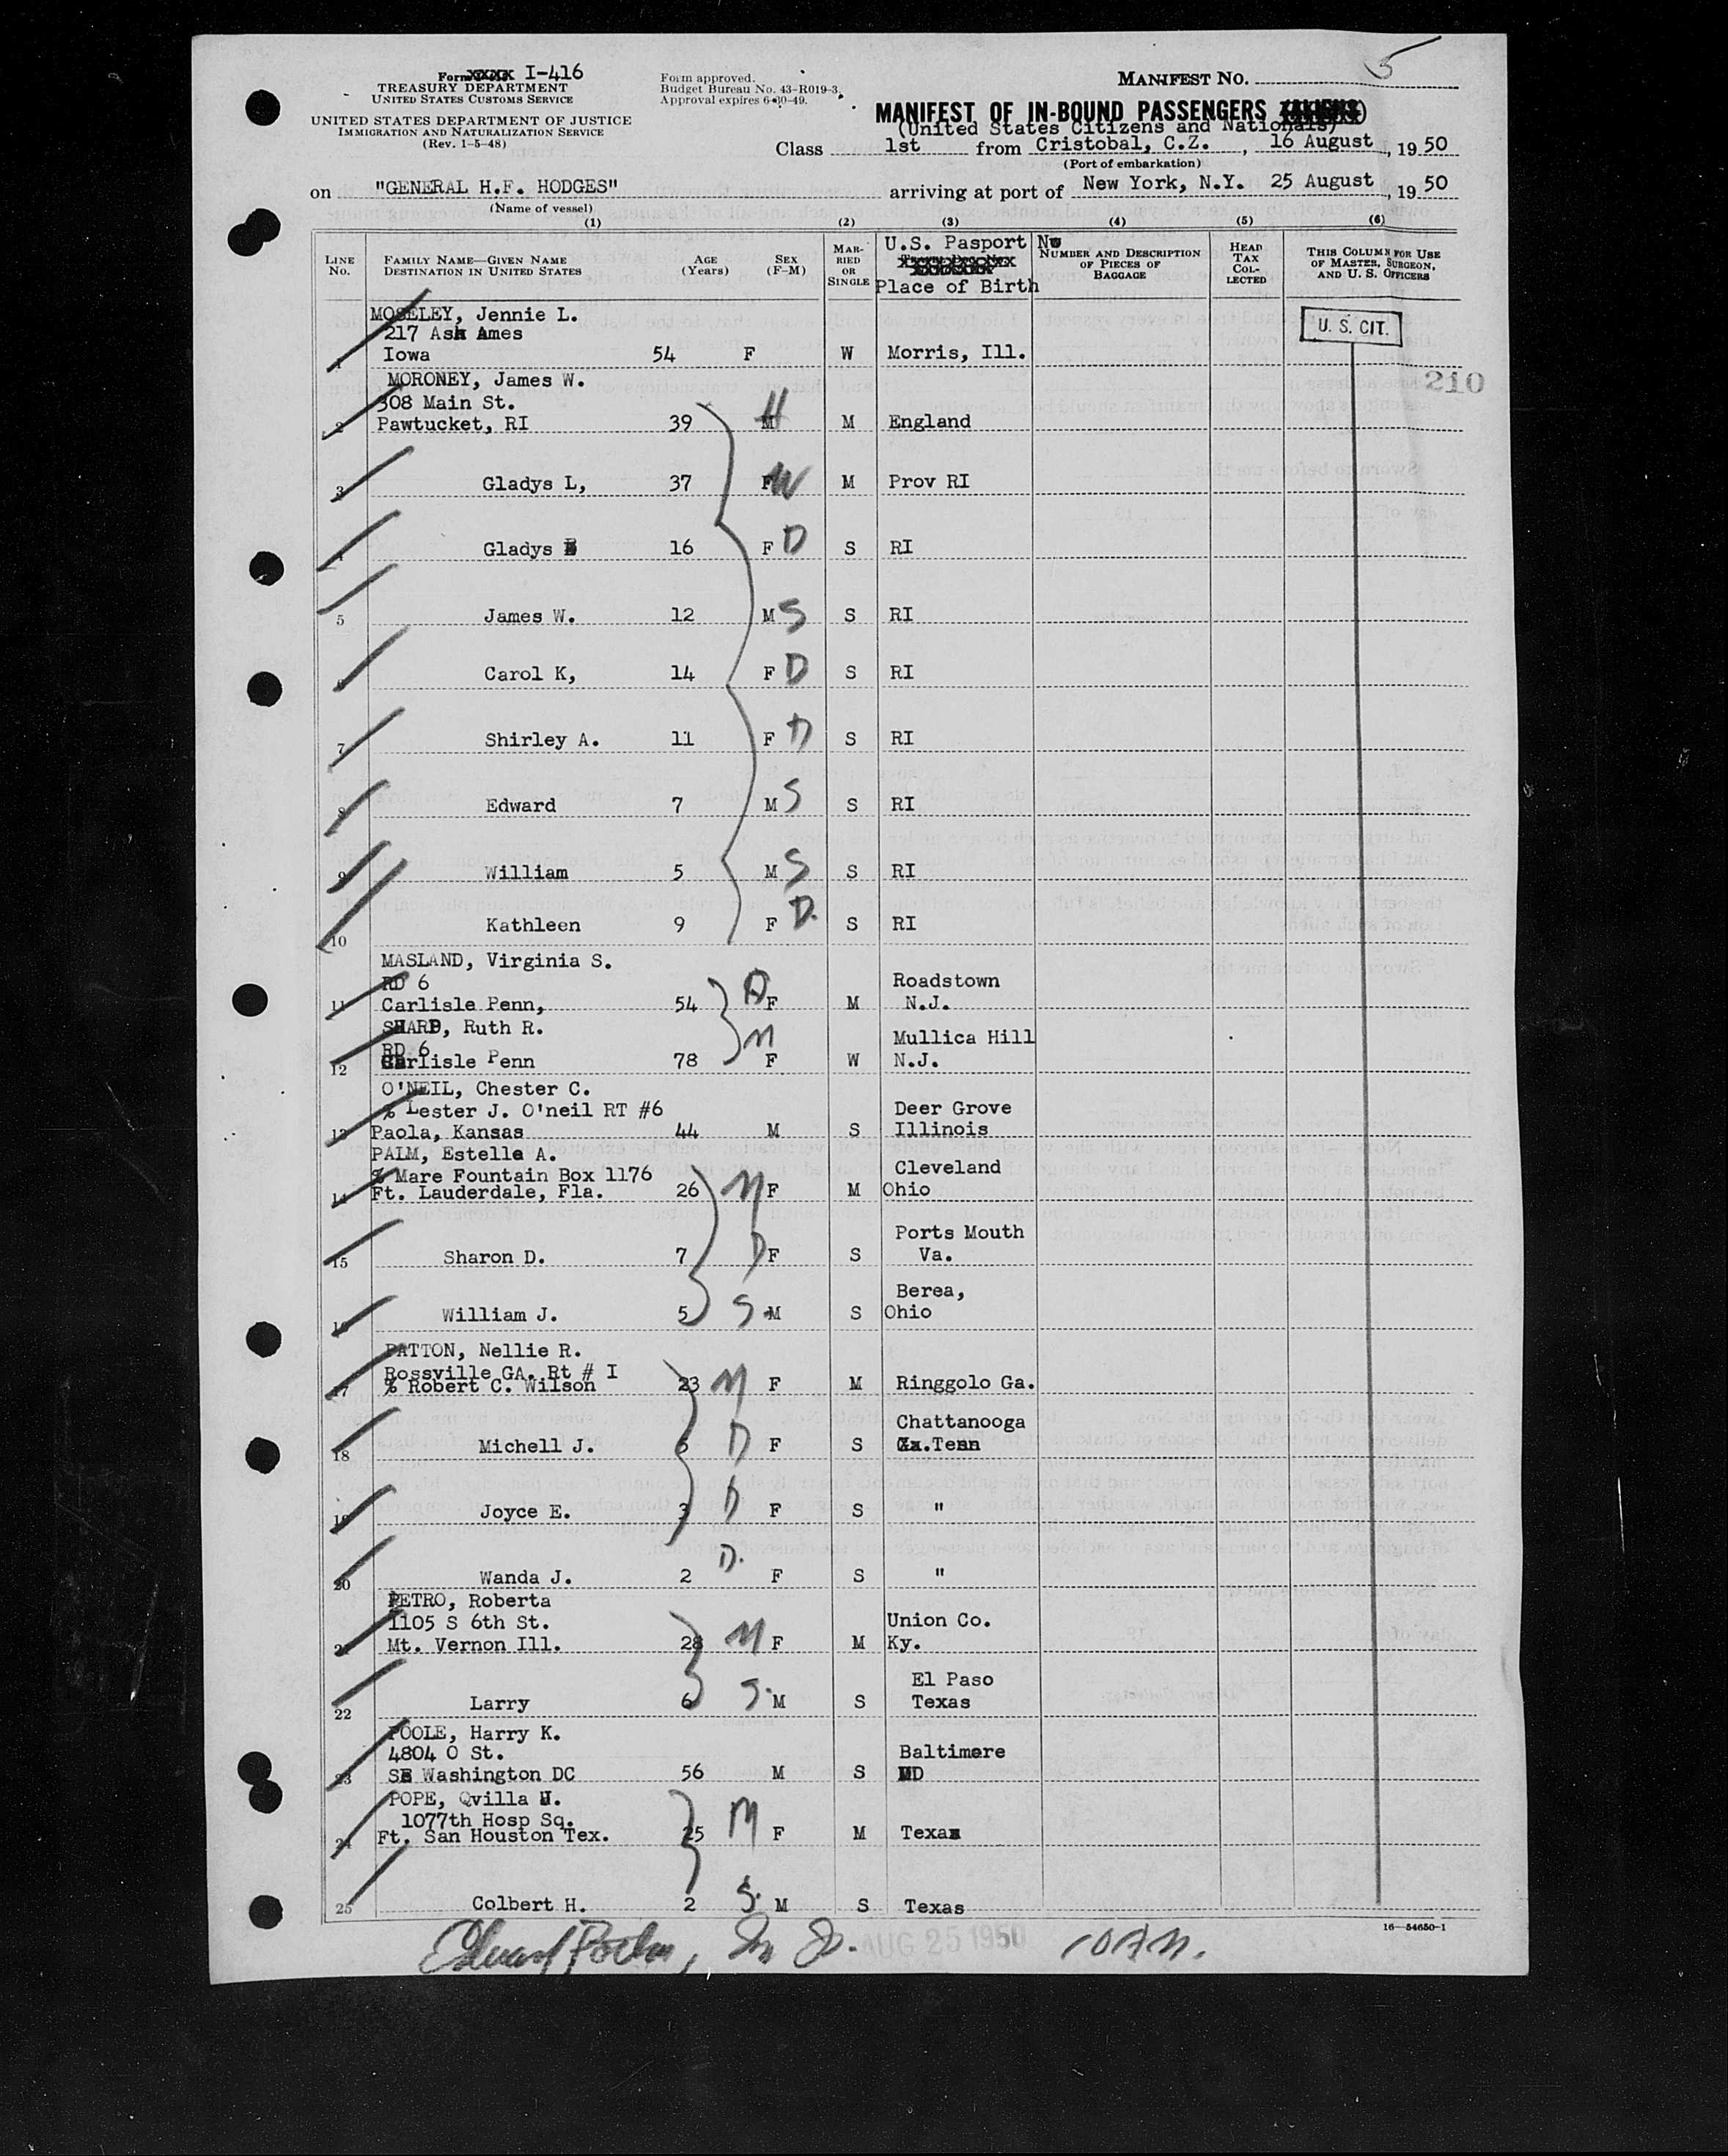 Form I-416
TREASURY DEPARTMENT
UNITED STATES CUSTOMS SERVICE
UNITED STATES DEPARTMENT OF JUSTICE
IMMIGRATION AND NATURALIZATION SERVICE
(Rev. 1-5-48)
Form approved.
Budget Bureau No. 43-R019-3.
Approval expires 6-30-49.
MANIFEST NO. 5
MANIFEST OF IN-BOUND PASSENGERS (ALIENS)
(United States Citizens and Nationals)
Class 1st from Cristobal, C.Z., 16 August, 1950
(Port of embarkation)
on "GENERAL H.F. HODGES" arriving at port of New York, N.Y. 25 August, 1950
(Name of vessel)
(1) (2) (3) (4) (5) (6)
LINE No.
FAMILY NAME—GIVEN NAME
DESTINATION IN UNITED STATES
AGE (Years)
SEX (F-M)
MARRIED OR SINGLE
U.S. Pasport No
Place of Birth
NUMBER AND DESCRIPTION OF PIECES OF BAGGAGE
HEAD TAX COLLECTED
THIS COLUMN FOR USE OF MASTER, SURGEON, AND U. S. OFFICERS
U. S. CIT.
210
MOSELEY, Jennie L.
217 Ash Ames
1 Iowa 54 F W Morris, Ill.
MORONEY, James W.
308 Main St.
2 Pawtucket, RI 39 M H M England
3 Gladys L, 37 F W M Prov RI
4 Gladys 16 F D S RI
5 James W. 12 M S S RI
6 Carol K, 14 F D S RI
7 Shirley A. 11 F D S RI
8 Edward 7 M S S RI
9 William 5 M S S RI
10 Kathleen 9 F D. S RI
MASLAND, Virginia S.
RD 6 Roadstown
11 Carlisle Penn, 54 D F M N.J.
SHARP, Ruth R.
RD 6 Mullica Hill
12 Carlisle Penn 78 M F W N.J.
O'NEIL, Chester C.
% Lester J. O'neil RT #6 Deer Grove
13 Paola, Kansas 44 M S Illinois
PALM, Estella A.
% Mare Fountain Box 1176 Cleveland
14 Ft. Lauderdale, Fla. 26 M F M Ohio
Ports Mouth
15 Sharon D. 7 D F S Va.
Berea,
16 William J. 5 S M S Ohio
PATTON, Nellie R.
Rossville GA. Rt # I
17 % Robert C. Wilson 23 M F M Ringgolo Ga.
Chattanooga
18 Michell J. 6 D F S Tenn
19 Joyce E. 3 D F S "
20 Wanda J. 2 D. F S "
PETRO, Roberta
1105 S 6th St. Union Co.
21 Mt. Vernon Ill. 28 M F M Ky.
El Paso
22 Larry 6 S. M S Texas
POOLE, Harry K.
4804 O St. Baltimore
23 SE Washington DC 56 M S MD
POPE, Qvilla J.
1077th Hosp Sq.
24 Ft. San Houston Tex. 25 M F M Texas
25 Colbert H. 2 S. M S Texas
16—54650-1
AUG 25 1950